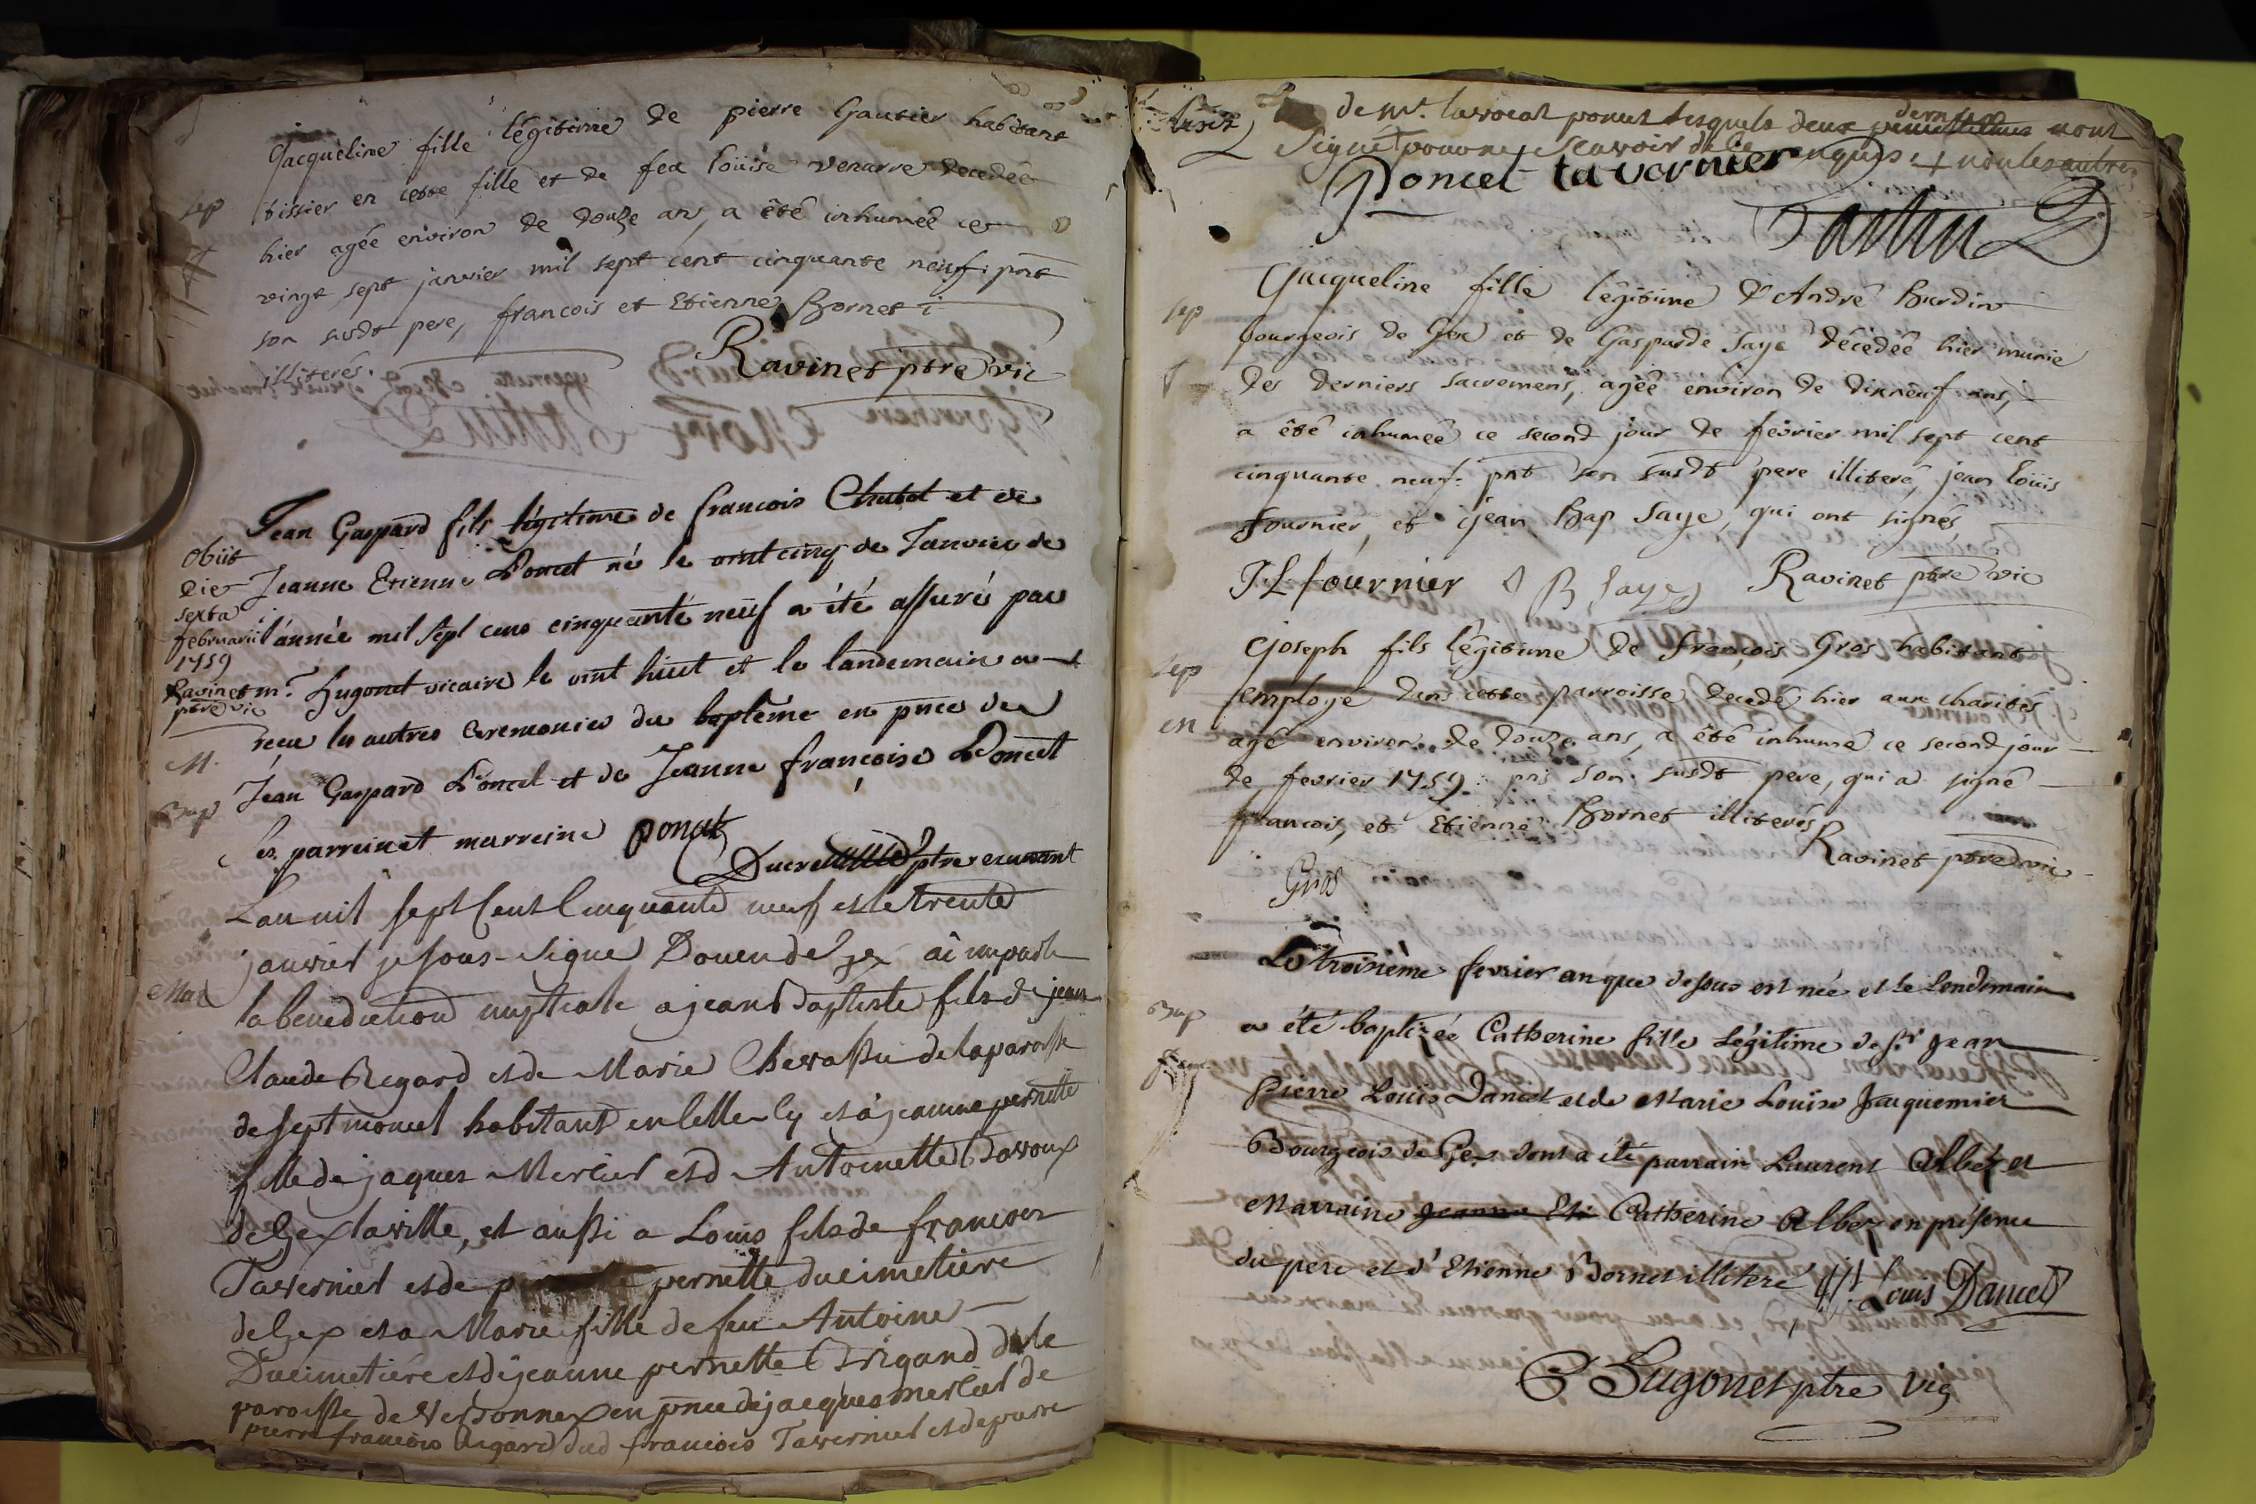 Jacqueline fille légitime de pierre Gautier habitant
sep
tissier en cette fille et de feü loüise decedée
hier agée environ de douze ans, a été inhumée ce
vingt sept janvier mil sept cent cinquante neuf. pnt
son susdt pere, francois et Etienne Bornet i
illiterés.
Ravinet ptre vic
Jean Gaspard fils légitime de francois Chutel et de
Jeanne Etienne Poncet né le vint cinq de Janvier de
l'année mil sept cens cinquante neuf a été assuré par
mr. Hugonet vicaire le vint huit et le landemain a
recu les autres ceremonies du baptême en pnce de
Jean Gaspard Poncet et de Jeanne francoise Poncet
ses parrein et marreine ponut
Obiit
die
sexta
februarii
1759
Ravinet
ptre vic
M.
Bap
ptre
L'an mil sept Cent Cinquante neuf et le trente
janvier je sous-signé Doyen de gex ai imparti
Mar
la benediction nuptiale a jean Baptiste fils de jean
Claude Regard et de Marie Chevassu de la paroisse
de septmoncel habitant en lelle ly et à jeanne pernette
fille de jaques Mercier et d Antoinette Davoux
de Gex la ville, et aussi a Louis fils de francois
Tavernier et de pernette ducimetiere
de Gex et a Marie fille de feu Antoine
Ducimetiére et de jeanne pernette Brigand de la
paroisse de Vesonnex en pnce de jacques mercier de
pierre francois Regard dud francois Tavernier et de pierre
de mr. lavocat ponut lesquels deux derniers nont
signé pour ne scavoir de ce enquis + non les autres
Poncet tavernier
Jacqueline fille légitime d'André Burdin
sep
bourgeois de Gex et de Gasparde Saye décédée hier munie
des derniers sacremens, agée environ de dixneuf ans,
a été inhumée ce second jour de fevrier mil sept cent
cinquante neuf. pnt son susdt pere illiteré, jean loüis
fournier, et jean Bap Saye, qui ont signés
J L fournier J B Saye Ravinet ptre vic
Joseph fils légitime de françois Gros habitant
sep
employé dans cette parroisse decedé hier aux charités
en
agé environ de douze ans, a été inhumé ce second jour
de fevrier 1759. pns son susdt pere, qui a signé
francois, et Etienne Bornet illiterés
Ravinet ptre vic
Gros
Le troisième fevrier an que dessus est née et le Lendemain
Bap
a été baptizée Catherine fille Légitime de sr. Jean
Pierre Louis Dancet et de Marie Louise Jacquemier
Bourgeois de Gex dont a été parrain Laurent Albez et
Marraine Jeanne Eti Catherine Albez en présence
du pere et d'Etienne Bornet illiteré Louis Dancet
Hugonet ptre vic